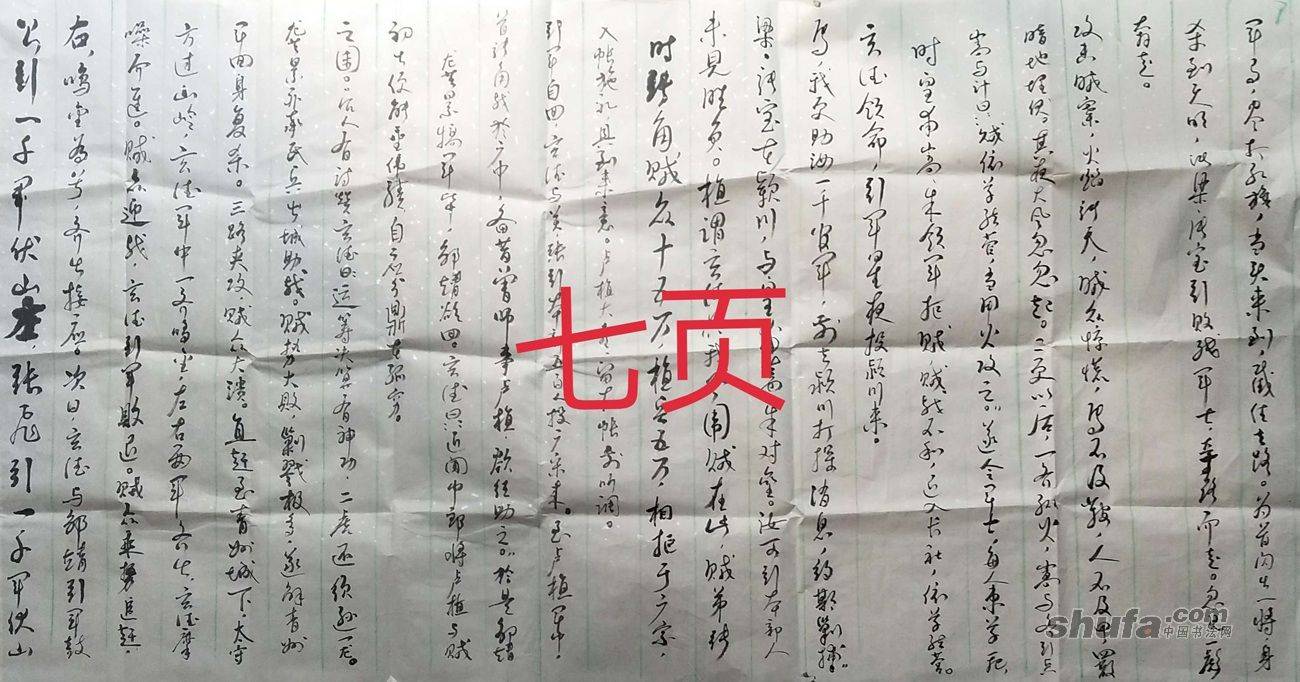 公引一千军伏山左，张飞引一千军伏山
右，鸣金为号，齐出接应。次日，玄德与邹靖引军鼓
噪而进。贼众迎战，玄德引军败退。贼众乘势追赶，
方过山岭，玄德军中一齐鸣金，左右两军齐出，玄德麾
军回身复杀。三路夹攻，贼众大溃。直赶至青州城下，太守
龚景亦率民兵出城助战。贼势大败，剿戮极多，遂解青州
之围。后人有诗赞玄德曰：运筹决算有神功，二虎还须逊一龙。
初出便能垂伟绩，自应分鼎在孤穷。
龚景犒军毕，邹靖欲回。玄德曰：近闻中郎将卢植与贼
首张角战于广宗，备昔曾师事卢植，欲往助之。”于是邹靖
引军自回，玄德与关、张引本部五百人投广宗来。至卢植军中，
入帐施礼，具到来意。卢植大喜，留在帐前听调。
时张角贼众十五万，植兵五万，相拒于广宗，
未见胜负。植谓玄德曰我今围贼在此，贼弟张
梁、张宝在颍川，与皇甫嵩、朱对垒。汝可引本部人
马，我更助汝一千官军，前去颍川打探消息，约期剿捕。”
玄德领命，引军星夜投颍川来。
时皇甫嵩朱领军拒贼，贼战不利，退入长社，依草结营。
嵩与计曰：贼依草结营，当用火攻之。”遂令军士，每人束草一把
暗地埋伏。其夜大风忽起。二更以后，一齐纵火，嵩与各引兵
攻击贼寨，火焰张天，贼众惊慌，马不及鞍，人不及甲，四散
奔走。
杀到天明，张梁张宝引败残军士，夺路而走。忽见一彪
军马，尽打红旗，当头来到，截住去路。为首闪出一将，身
七页
shufa.com
中国书法网